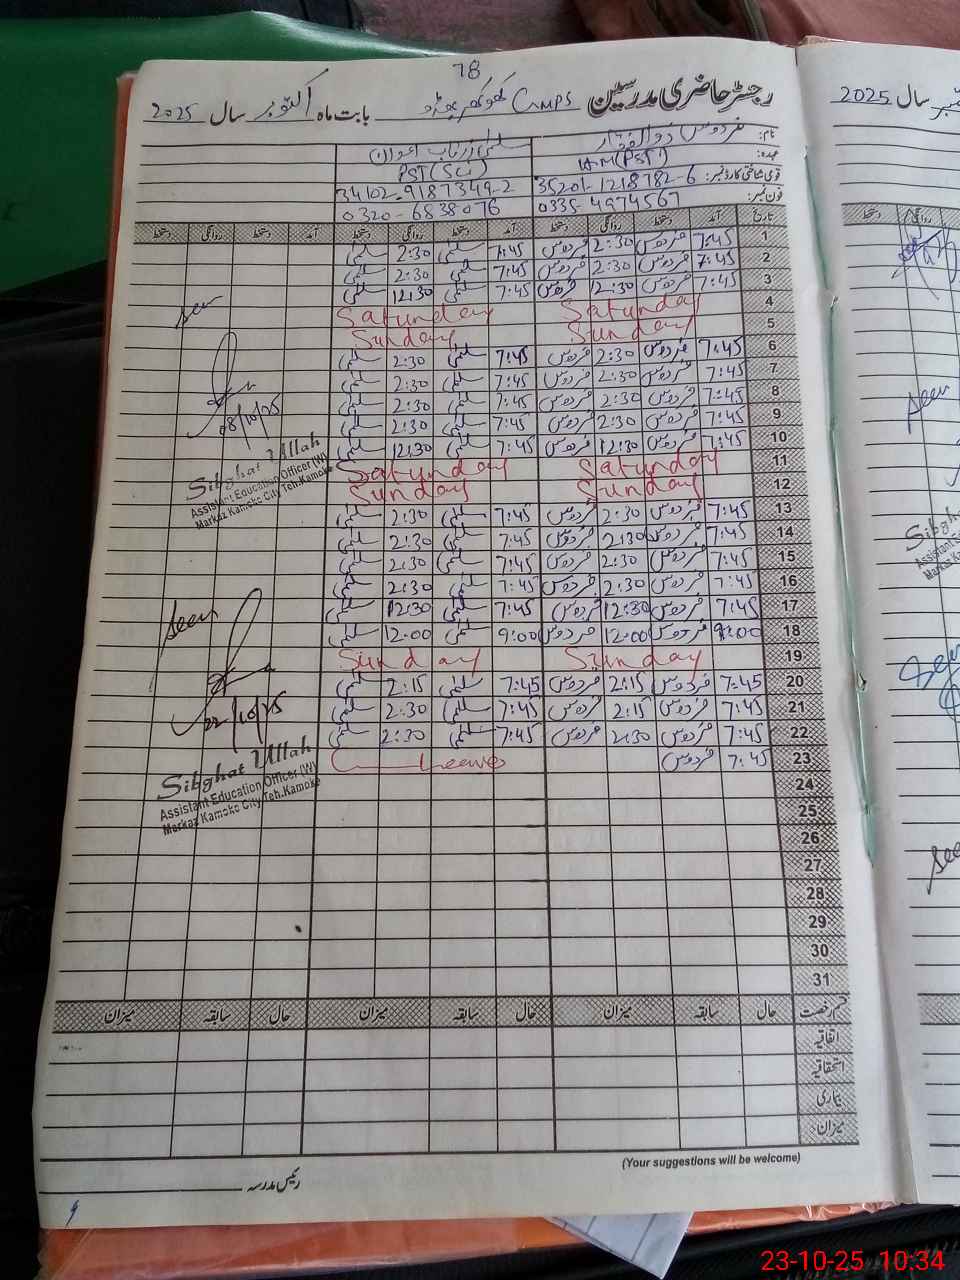 78
رجسٹر حاضری مدرسین CMPS بابت ماہ اکتوبر سال 2025
نام: فردوس ذوالفقار سلمیٰ زرتاب اعوان
عہدہ: (PST) PST(SC)
قومی شناختی کارڈ نمبر: 35201-1218782-6 34102-9187349-2
فون نمبر: 0335-4974567 0320-6838076
تاریخ آمد دستخط روانگی دستخط آمد دستخط روانگی دستخط آمد دستخط روانگی دستخط
1 7:45 فردوس 2:30 فردوس 7:45 سلمیٰ 2:30 سلمیٰ
2 7:45 فردوس 2:30 فردوس 7:45 سلمیٰ 2:30 سلمیٰ
3 7:45 فردوس 12:30 فردوس 7:45 سلمیٰ 12:30 سلمیٰ
4 Saturday Saturday
5 Sunday Sunday
6 7:45 فردوس 2:30 فردوس 7:45 سلمیٰ 2:30 سلمیٰ
7 7:45 فردوس 2:30 فردوس 7:45 سلمیٰ 2:30 سلمیٰ
8 7:45 فردوس 2:30 فردوس 7:45 سلمیٰ 2:30 سلمیٰ
9 7:45 فردوس 2:30 فردوس 7:45 سلمیٰ 2:30 سلمیٰ
10 7:45 فردوس 12:30 فردوس 7:45 سلمیٰ 12:30 سلمیٰ
11 Saturday Saturday
12 Sunday Sunday
13 7:45 فردوس 2:30 فردوس 7:45 سلمیٰ 2:30 سلمیٰ
14 7:45 فردوس 2:30 فردوس 7:45 سلمیٰ 2:30 سلمیٰ
15 7:45 فردوس 2:30 فردوس 7:45 سلمیٰ 2:30 سلمیٰ
16 7:45 فردوس 2:30 فردوس 7:45 سلمیٰ 2:30 سلمیٰ
17 7:45 فردوس 12:30 فردوس 7:45 سلمیٰ 12:30 سلمیٰ
18 9:00 فردوس 12:00 فردوس 9:00 سلمیٰ 12:00 سلمیٰ
19 Sunday Sunday
20 7:45 فردوس 2:15 فردوس 7:45 سلمیٰ 2:15 سلمیٰ
21 7:45 فردوس 2:15 فردوس 7:45 سلمیٰ 2:30 سلمیٰ
22 7:45 فردوس 2:30 فردوس 7:45 سلمیٰ 2:30 سلمیٰ
23 7:45 فردوس Leave
24
25
26
27
28
29
30
31
seen
08/10/25
Sibghat Ullah
Assistant Education Officer (W)
Markaz Kamoke City Teh.Kamoke
seen
22/10/25
Sibghat Ullah
Assistant Education Officer (W)
Markaz Kamoke City Teh.Kamoke
قسم رخصت حال سابقہ میزان حال سابقہ میزان حال سابقہ میزان
اتفاقیہ
استحقاقیہ
بیماری
میزان
(Your suggestions will be welcome)
رئیس مدرسہ
سال 2025
دستخط روانگی
Seen
Assistant Ed
Seen
23-10-25 10:34